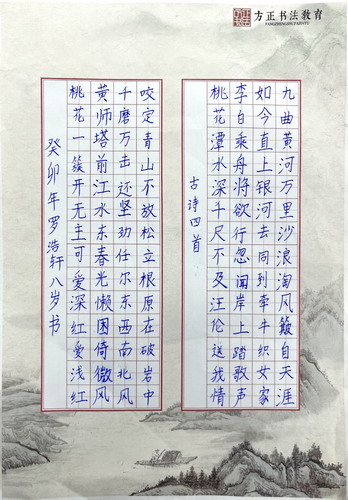 方正书法教育
FANGZHENGSHUFAJIAOYU
九曲黄河万里沙浪淘风簸自天涯
如今直上银河去同到牵牛织女家
李白乘舟将欲行忽闻岸上踏歌声
桃花潭水深千尺不及汪伦送我情
古诗四首
咬定青山不放松立根原在破岩中
千磨万击还坚劲任尔东西南北风
黄师塔前江水东春光懒困倚微风
桃花一簇开无主可爱深红爱浅红
癸卯年罗浩轩八岁书